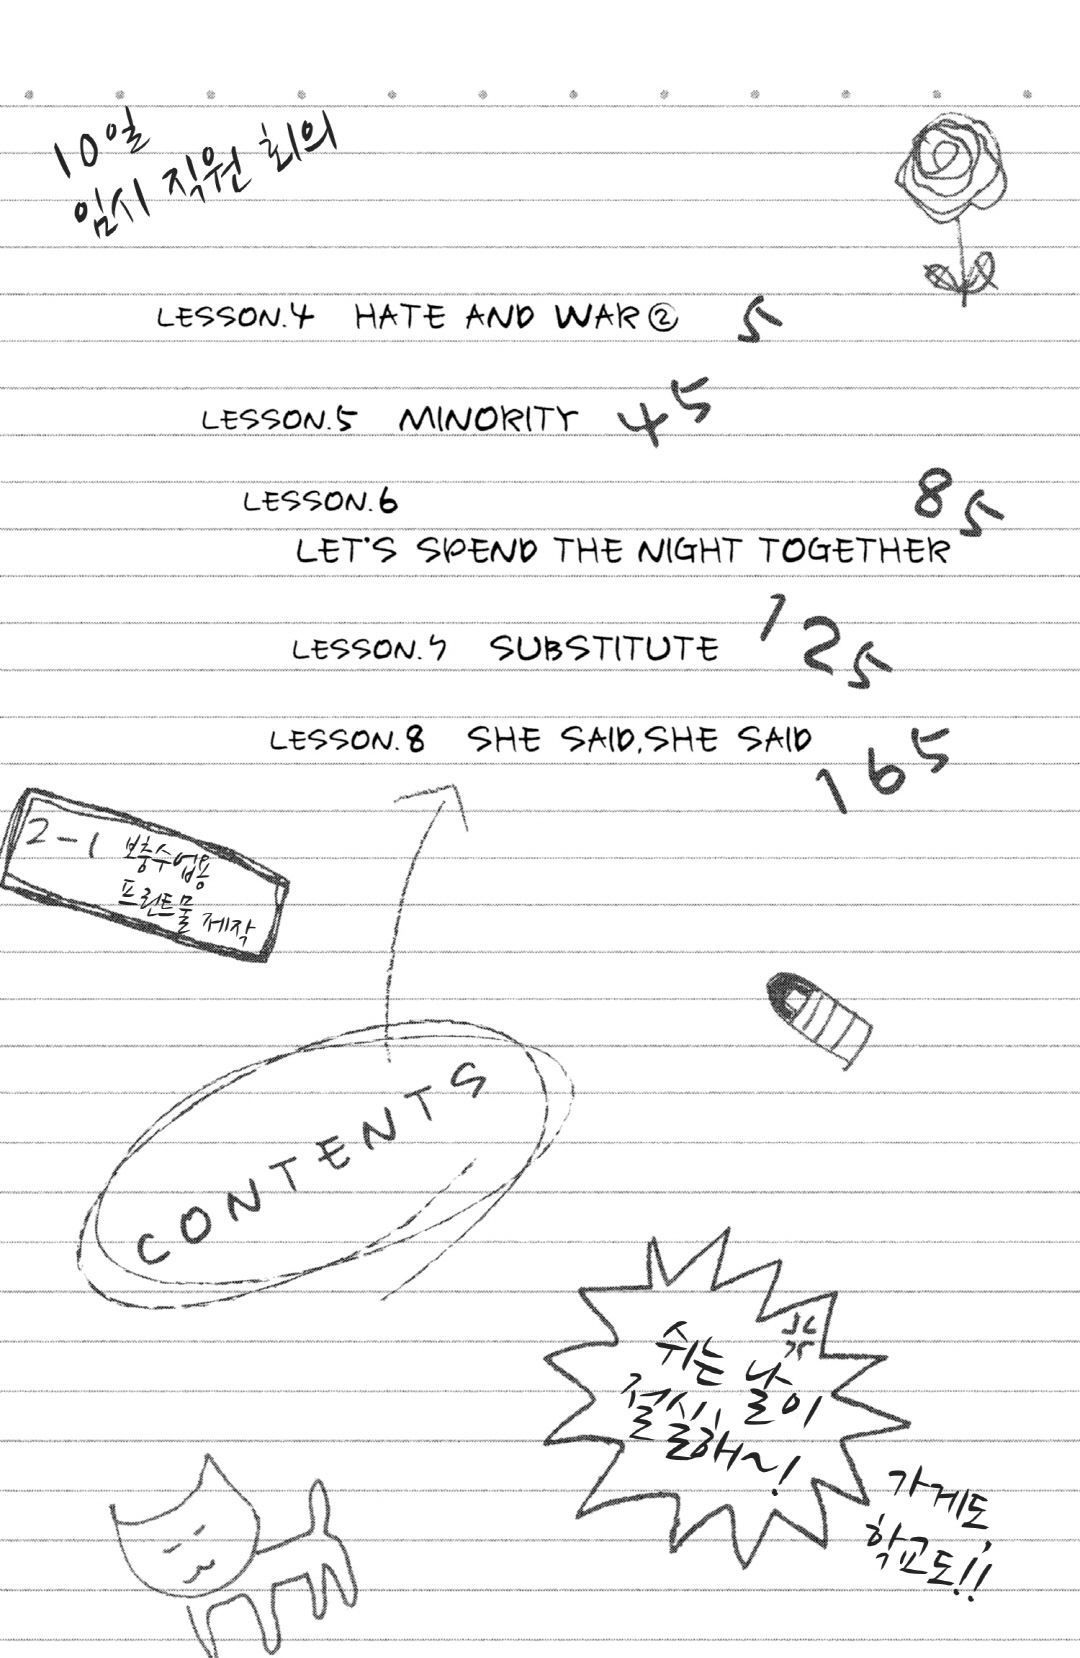 10일
임시 직원 회의
LESSON.4 HATE AND WAR② 5
LESSON.5 MINORITY 45
LESSON.6 85
LET'S SPEND THE NIGHT TOGETHER
LESSON.7 SUBSTITUTE 125
LESSON.8 SHE SAID,SHE SAID 165
2-1 보충수업용
프린트물 제작
CONTENTS
쉬는 날이
절실해~!
가게도,
학교도!!